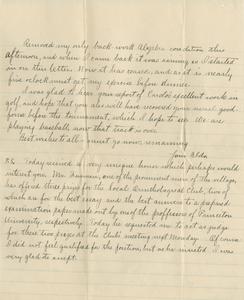 Removed my only back-work Algebra condition this
afternoon, and when I came back it was raining so I started
in on this letter. Now it has ceased, and as it is nearly
five o'clock must get my exercise before dinner.
I was glad to hear your report of excellent work in
golf, and hope that you also will have recovered your usual good
form before the tournament, which I hope to see. We are
playing baseball now that track is over.
Best wishes to all - must go now, remaining
Your
P.S. Today received a very unique honor which perhaps would
interest you. Mr. one of the prominent men of the village,
has offered three prizes for the local Ornithological Club, two of
which are for the best essay and the best answers to a prepared
examination paper made out by one of the professors of Princeton
University, respectively. Today he requested me to act as judge
for these two prizes at the Club's meeting next Monday. Of course
I did not feel qualified for the position, but as he insisted I was
very glad to accept.